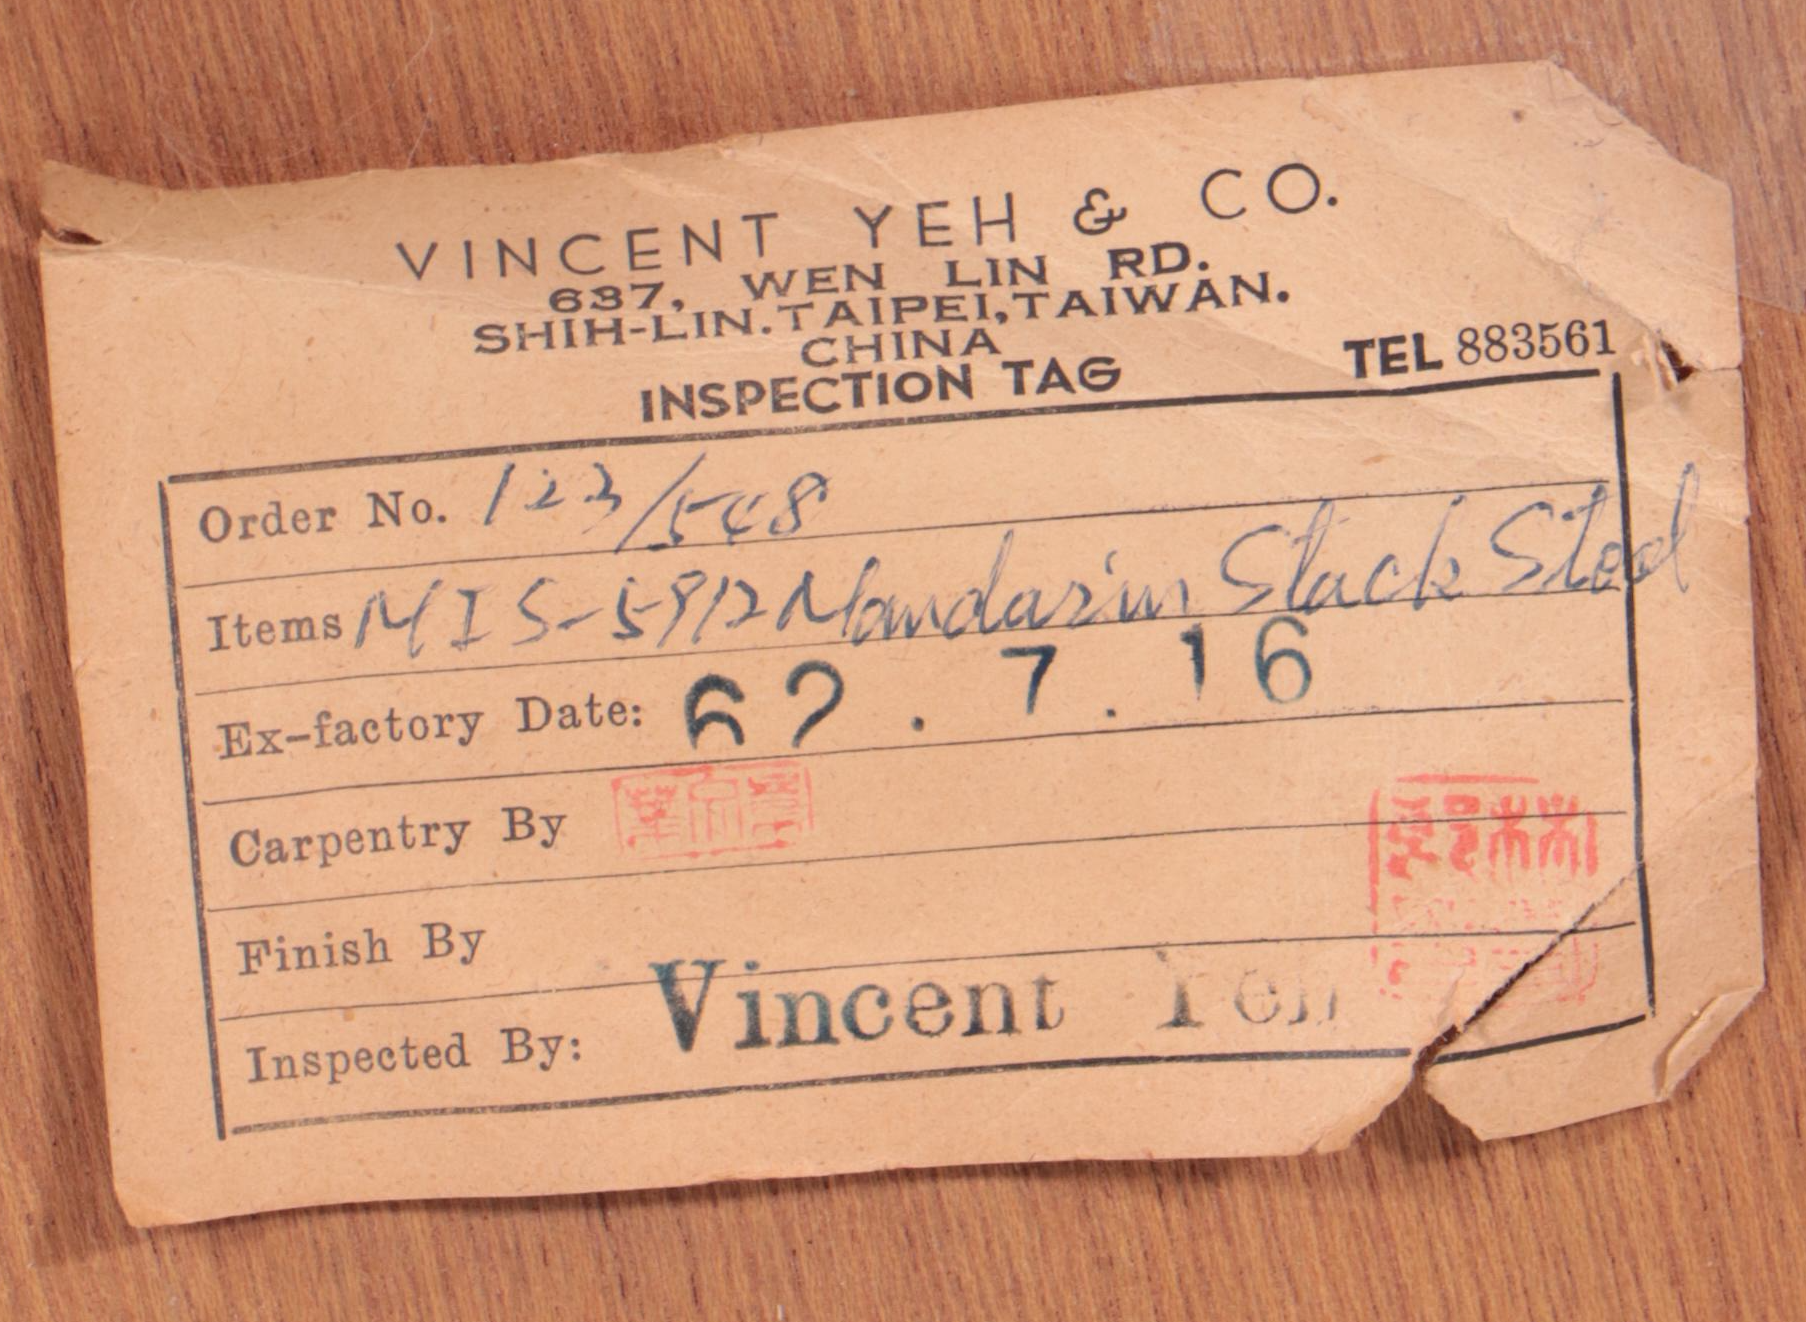 VINCENT YEH & CO.
637, WEN LIN RD.
SHIH-LIN. TAIPEI, TAIWAN.
CHINA
INSPECTION TAG
TEL 883561
Order No. 123/548
Items MIS-5912 Mandarin Stack Stool
Ex-factory Date: 62.7.16
Carpentry By
Finish By
Inspected By: Vincent Yeh